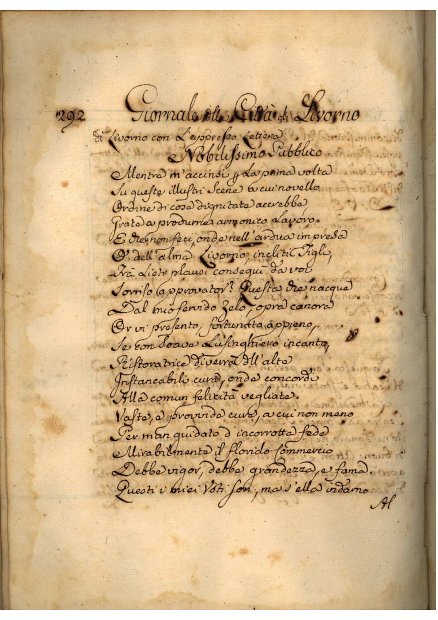 292 Giornale della Città di Livorno
di Livorno con l'appresso Lettera
Nobilissimo Pubblico
Mentre m'accinsi La prima volta
Su queste illustri Scene a cui novello
Ordine di cose dignitate accrebbe
Grata a produrre armonico Lavoro.
E che non feci, onde nell'ardua impresa
O' dell'alma Livorno incliti Figli,
Frà Liete plausi conseguì da voi
Sorriso approvator? Questa che nacque
Dal mio fervido Zelo, opra canora
Or vi presento, fortunata appieno,
Se con soave Lusinghiero incanto,
Ristoratrice diverrà dell'alte
Instancabili cure, onde concordi
Alla comun felicità vegliate.
Vaste, e provvide cure, a cui non meno
Per man guidato d'incorrotta fede
Mirabilmente il florido Commercio
Debbe vigor, debbe grandezza, e fama.
Questi i miei Voti son, ma s'ella indarno
Al